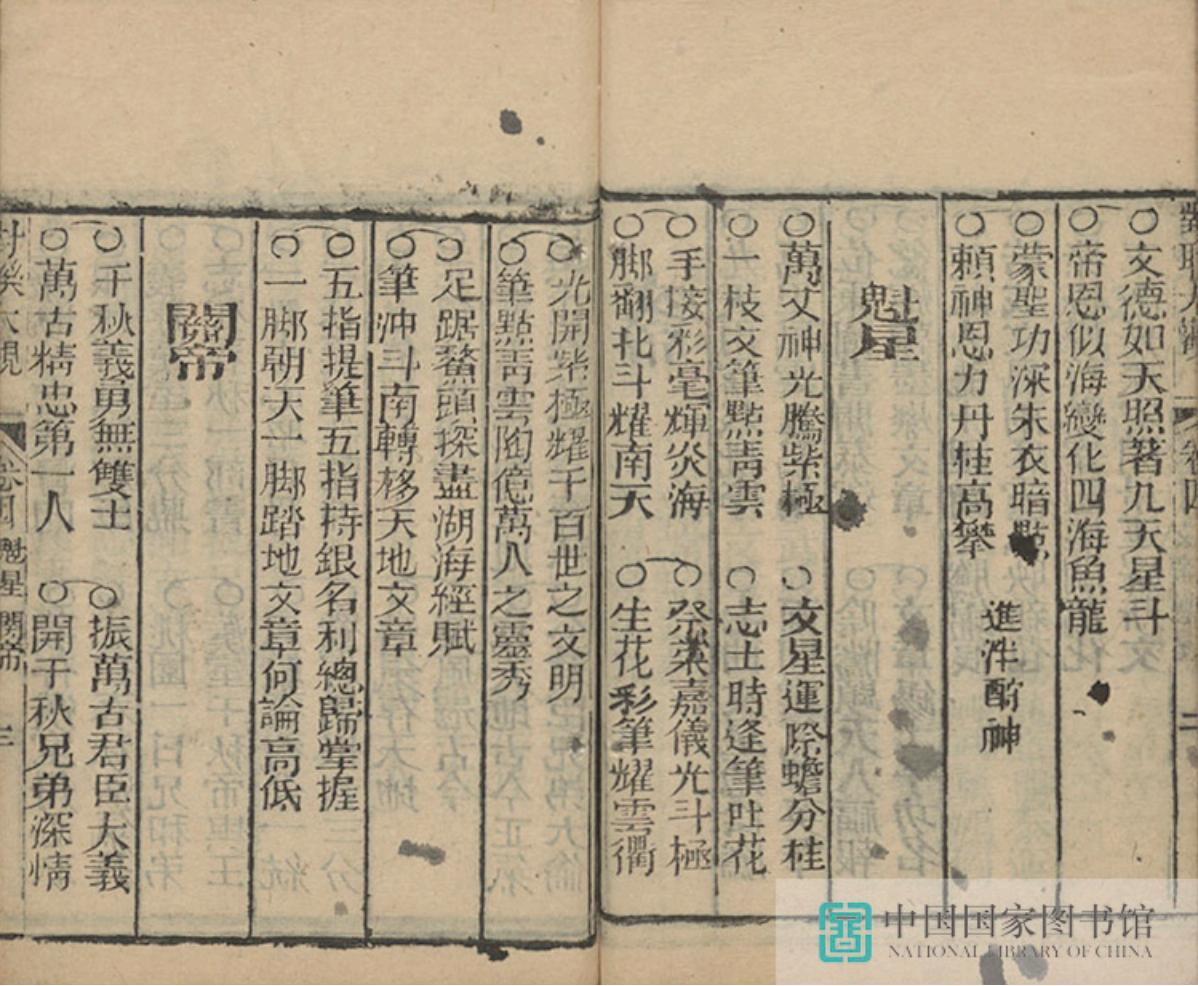 ○文德如天照著九天星斗
○帝恩似海變化四海魚龍
○蒙聖功深朱衣暗點
○頼神恩力丹桂高攀 進泮酧神
魁星
○萬丈神光騰紫極 ○文星運際蟾分桂
○一枝文筆點靑雲 ○志士時逢筆吐花
○手接彩毫輝炎海 ○祭崇嘉儀光斗極
○脚翻北斗耀南天 ○生花彩筆耀雲衢
○光開紫極耀千百世之文明
○筆點靑雲陶億萬人之靈秀
○足踞鰲頭探盡湖海經賦
○筆沖斗南轉移天地文章
○五指提筆五指持銀名利總歸掌握
○一脚朝天一脚踏地文章何論高低
關帝
○千秋義勇無雙士 ○振萬古君臣大義
○萬古精忠第一人 ○開千秋兄弟深情
卷四 魁星 關帝 三
中国国家图书馆
NATIONAL LIBRARY OF CHINA